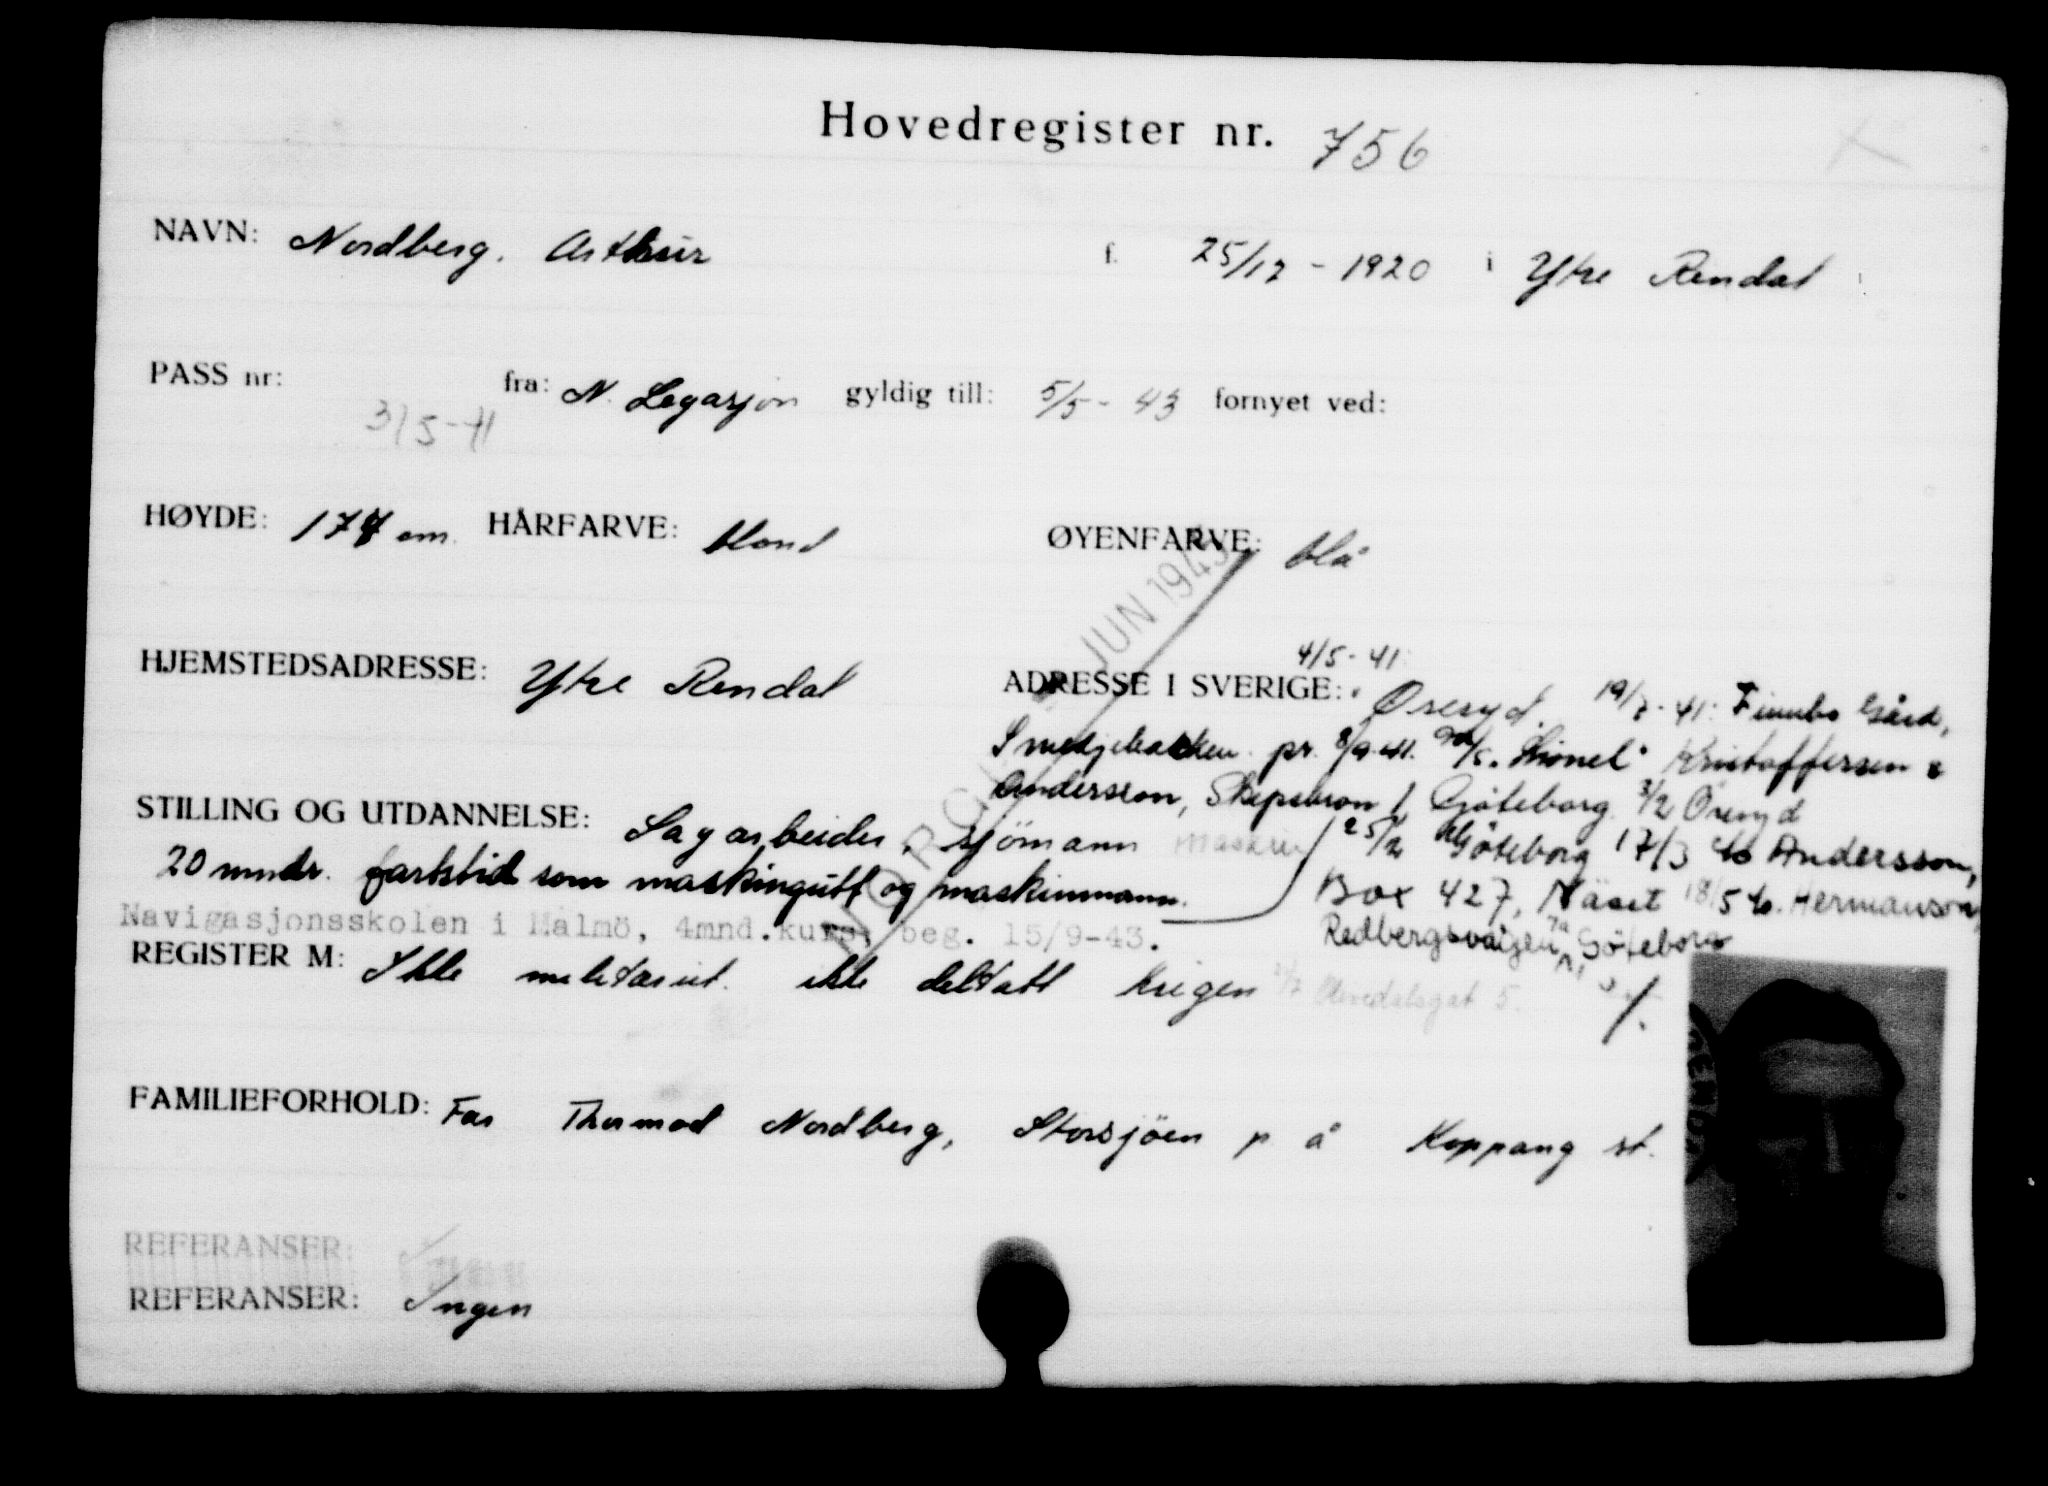 Hovedregister nr. 756
NAVN: Nordberg. Arthur f. 25/12 - 1920 i Ytre Rendal
PASS nr: fra: N. Legasjon gyldig till: 5/5 - 43 fornyet ved:
3/5-41
HØYDE: 174 cm. HÅRFARVE: blond ØYENFARVE: blå
JUN 1945
4/5 - 41:
HJEMSTEDSADRESSE: Ytre Rendal ADRESSE I SVERIGE: Öreryd. 19/7-41: Finnbo Gård,
Smedjebacken. pr. 8/9-41. Kristoffersen &
Andersson, Skepsbron 1 Göteborg. 3/2 Öreryd
STILLING OG UTDANNELSE: Sagarbeider, sjömann maskin 25/2 Göteborg 17/3 c/o Andersson,
20 mndr. fartstid som maskingutt og maskinmann. Box 427, Näset 18/5 c/o. Hermanson,
Navigasjonsskolen i Malmö, 4mnd.kurs, beg. 15/9-43. Redbergsvägen 7a Göteborg
NORGE
REGISTER M: Ikke militærut. ikke deltatt krigen
FAMILIEFORHOLD: Far Thormod Nordberg, Storsjöen p å Koppang st.
REFERANSER: Ingen
REFERANSER: Ingen